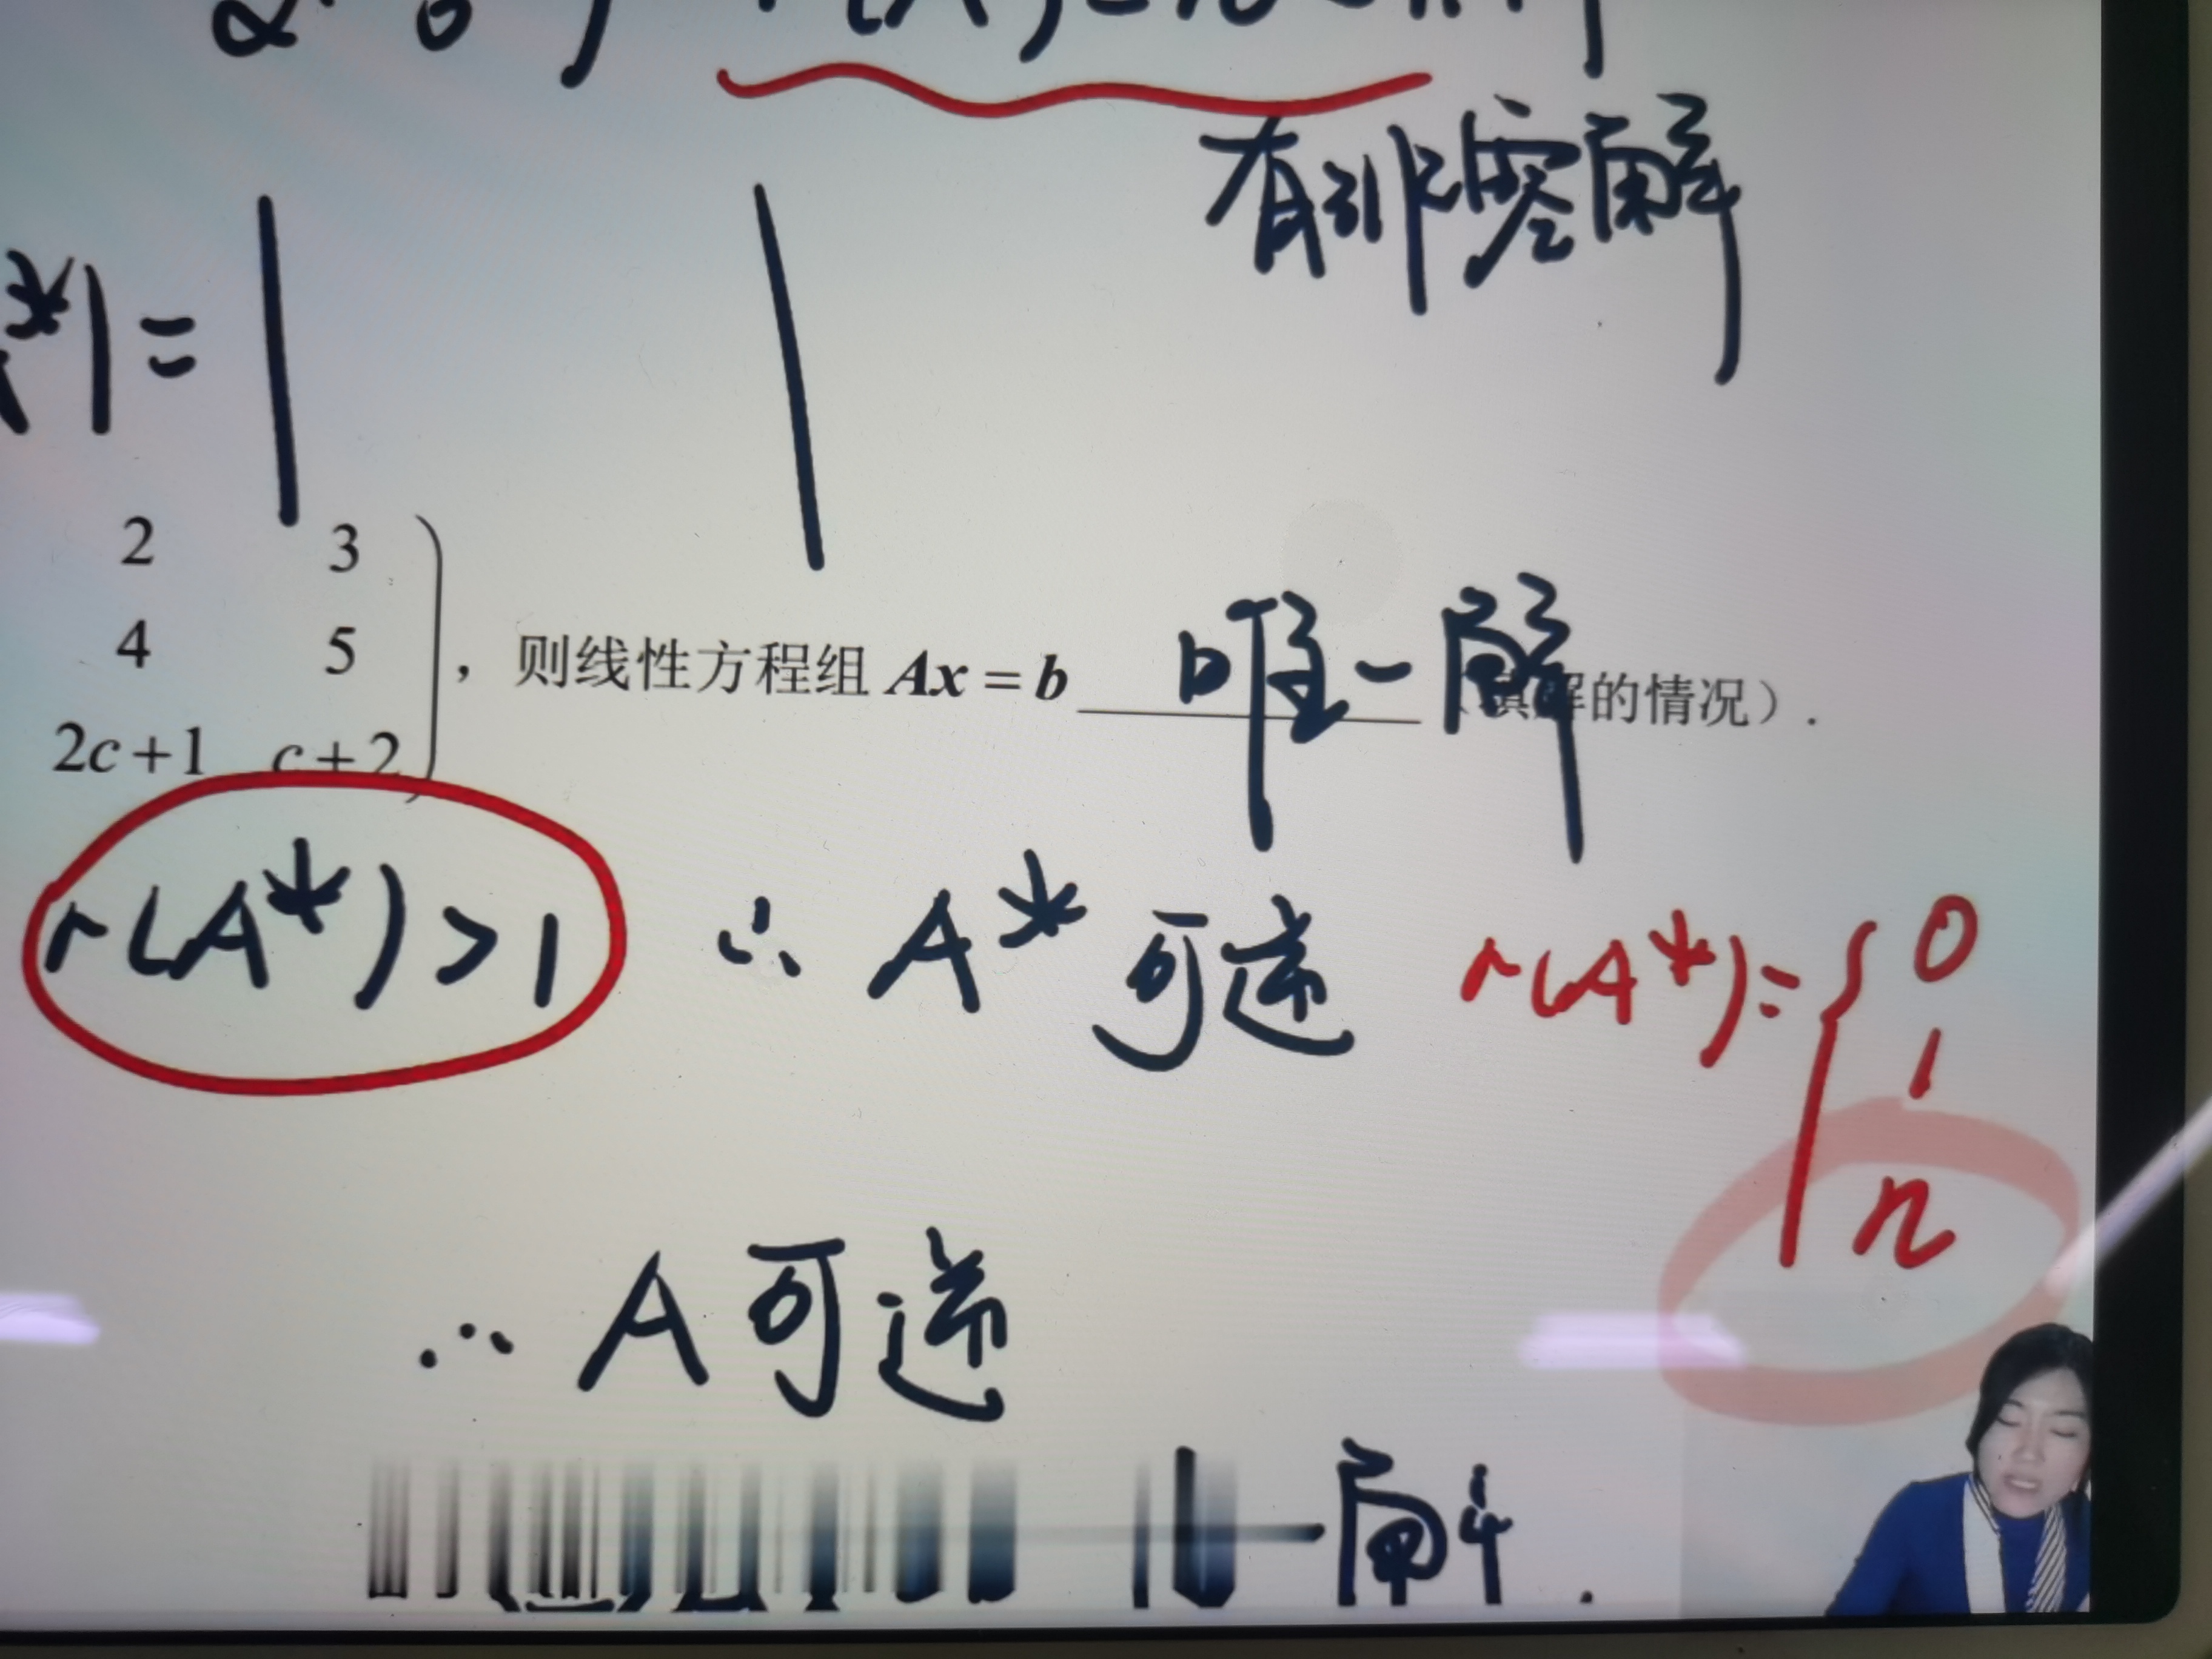 有非零解
*| = | |
2 3
4 5
2c+1 c+2
，则线性方程组 Ax = b 唯一解 解的情况）.
r(A*)>1 ∴ A* 可逆 r(A*)= { 0
1
n
∴ A可逆
一解.